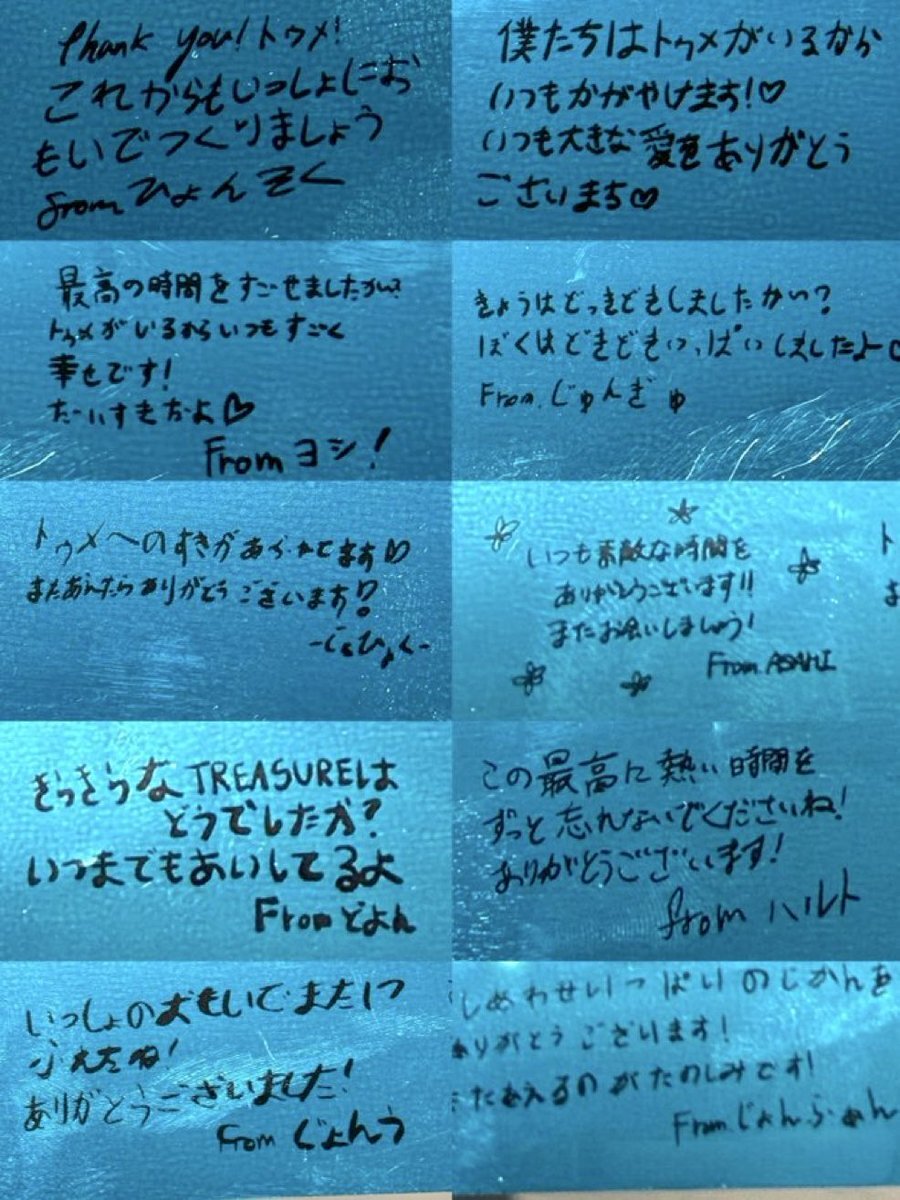 Thank you! トゥメ!
これからもいっしょにお
もいでつくりましょう
from ひょんそく
僕たちはトゥメがいるから
いつもかがやけます!♡
いつも大きな愛をありがとう
ございまち♡
最高の時間をすごせましたかい?
トゥメがいるからいつもすごく
幸せです!
だいすきだよ♡
From ヨシ!
きょうはどっきどきしましたかい?
ぼくはどきどきいっぱいしましたよ♡
From.じゅんぎゅ
トゥメへのすきがあふれてます♡
またあえたらありがとうございます!
いつも素敵な時間を
ありがとうございます!!
またお会いしましょう!
From.ASAHI
きらきらなTREASUREは
どうでしたか?
いつまでもあいしてるよ
From どよん
この最高に熱い時間を
ずっと忘れないでくださいね!
ありがとうございます!
from ハルト
いっしょのおもいでまた1つ
ふえたね!
ありがとうございました!
From じょんう
しあわせいっぱいのじかんを
ありがとうございます!
またあえるのがたのしみです!
From.じょんふぁん